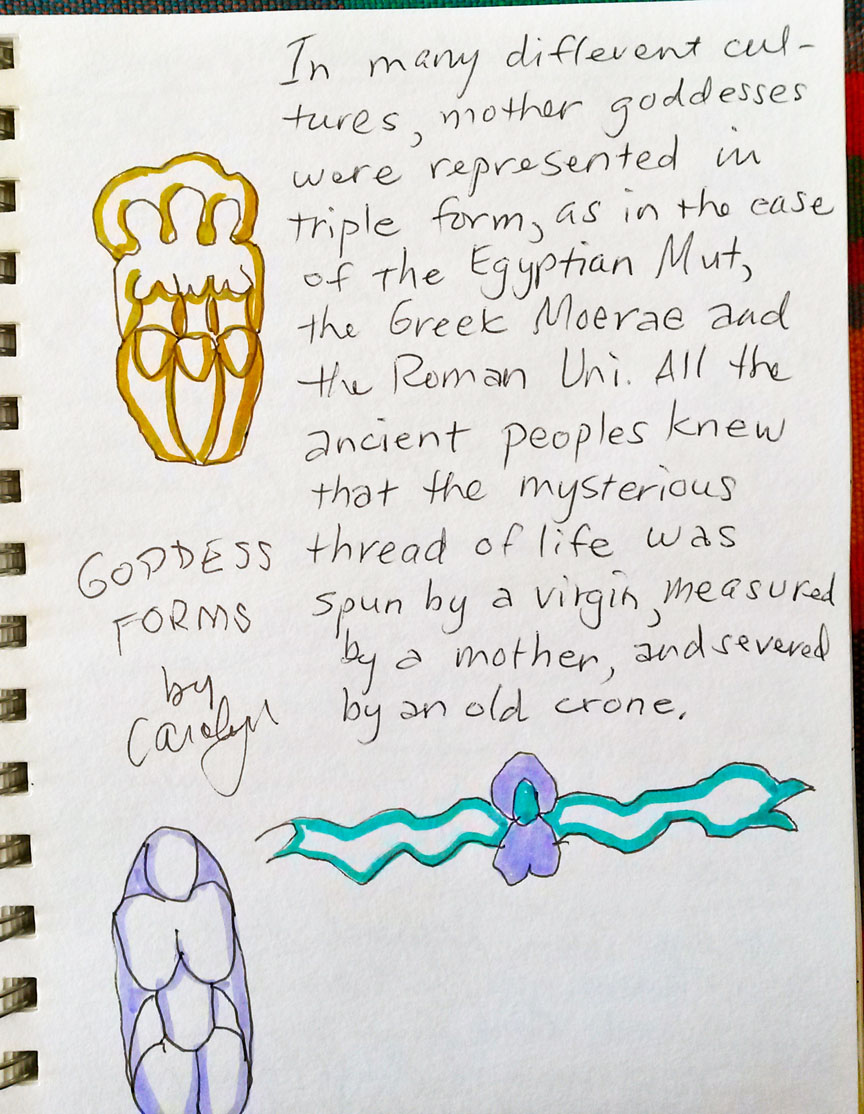 In many different cul-
tures, mother goddesses
were represented in
triple form, as in the case
of the Egyptian Mut,
the Greek Moerae and
the Roman Uni. All the
ancient peoples knew
that the mysterious
thread of life was
spun by a virgin, measured
by a mother, and severed
by an old crone.
GODDESS
FORMS
by
Carolyn